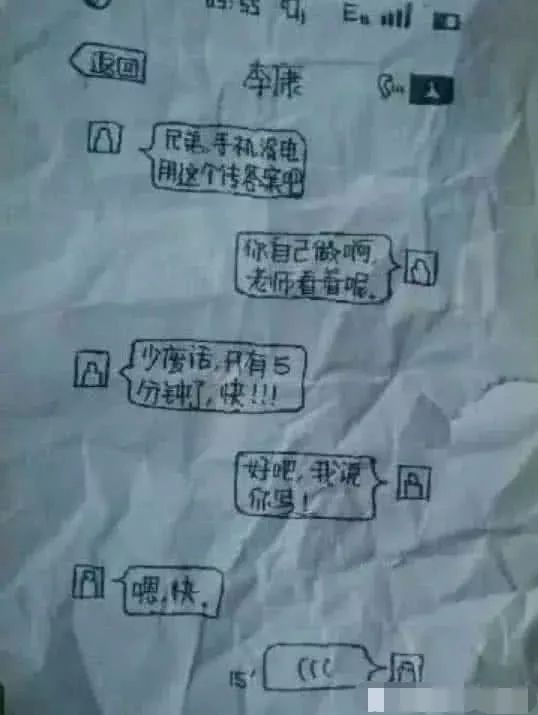 返回
李康
兄弟,手机没电
用这个传答案吧
你自己做啊
老师看着呢。
少废话,只有5
分钟了,快!!!
好吧,我说
你写!
嗯,快。
15'